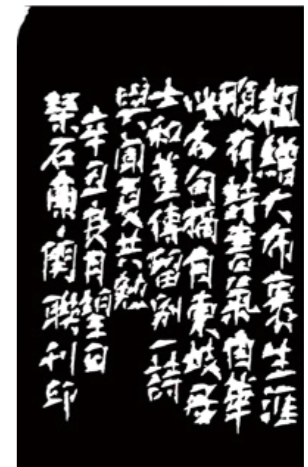 粗繒大布裹生涯
腹有詩書氣自華
此名句摘自東坡居
士和董傳留別一詩
與聞夏共勉
辛丑良月望日
石蘭聯刊印